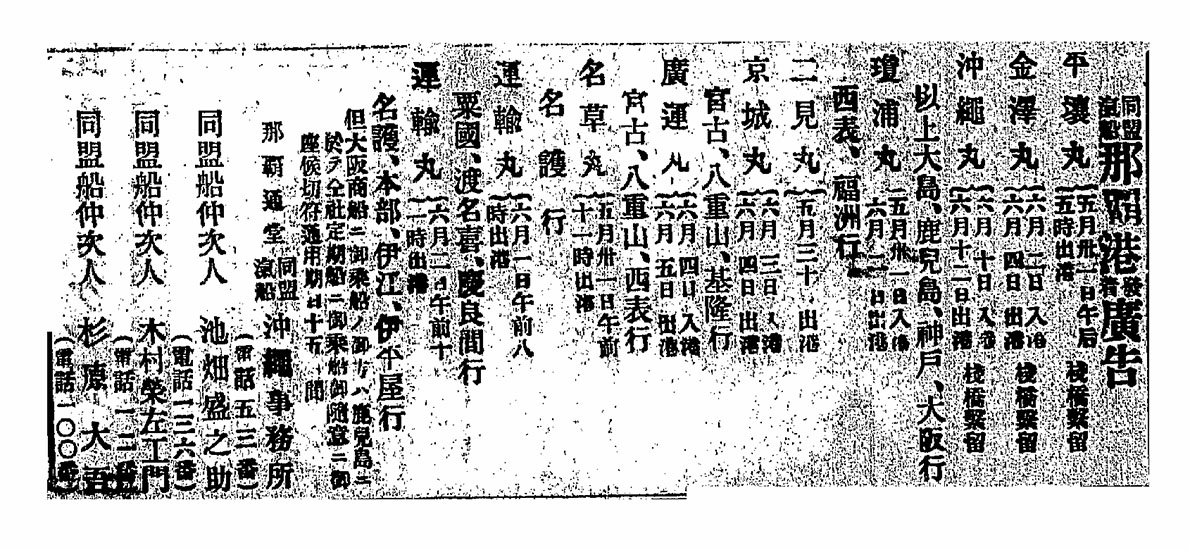 同盟汽船那覇港發着廣告
平壤丸 五月卅一日午后五時出港 棧橋繋留
金澤丸 六月二日入港 六月四日出港 棧橋繋留
沖繩丸 六月十日入港 六月十二日出港 棧橋繋留
以上大島、鹿兒島、神戸、大阪行
瓊浦丸 五月卅一日入港 六月二日出港
西表、福洲行
二見丸 五月三十 出港
京城丸 六月三日入港 六月四日出港
宮古、八重山、基隆行
廣運丸 六月四日入港 六月五日出港
宮古、八重山、西表行
名草丸 五月卅一日午前十一時出港
名護行
運輸丸 六月一日午前八時出港
粟國、渡名喜、慶良間行
運輸丸 六月二日午前十一時出港
名護、本部、伊江、伊平屋行
但大阪商船ニ御乘船ノ御方ハ鹿兒島ニ
於テ仝社定期船ニ御乘船御隨意ニ御
座候切符通用期日十五 間
那覇通堂 同盟汽船 沖繩事務所
(電話五三番)
同盟船仲次人 池畑盛之助
(電話一三六番)
同盟船仲次人 木村榮左工門
(電話一一二番)
同盟船仲次人 杉原大吾
(電話一〇〇番)